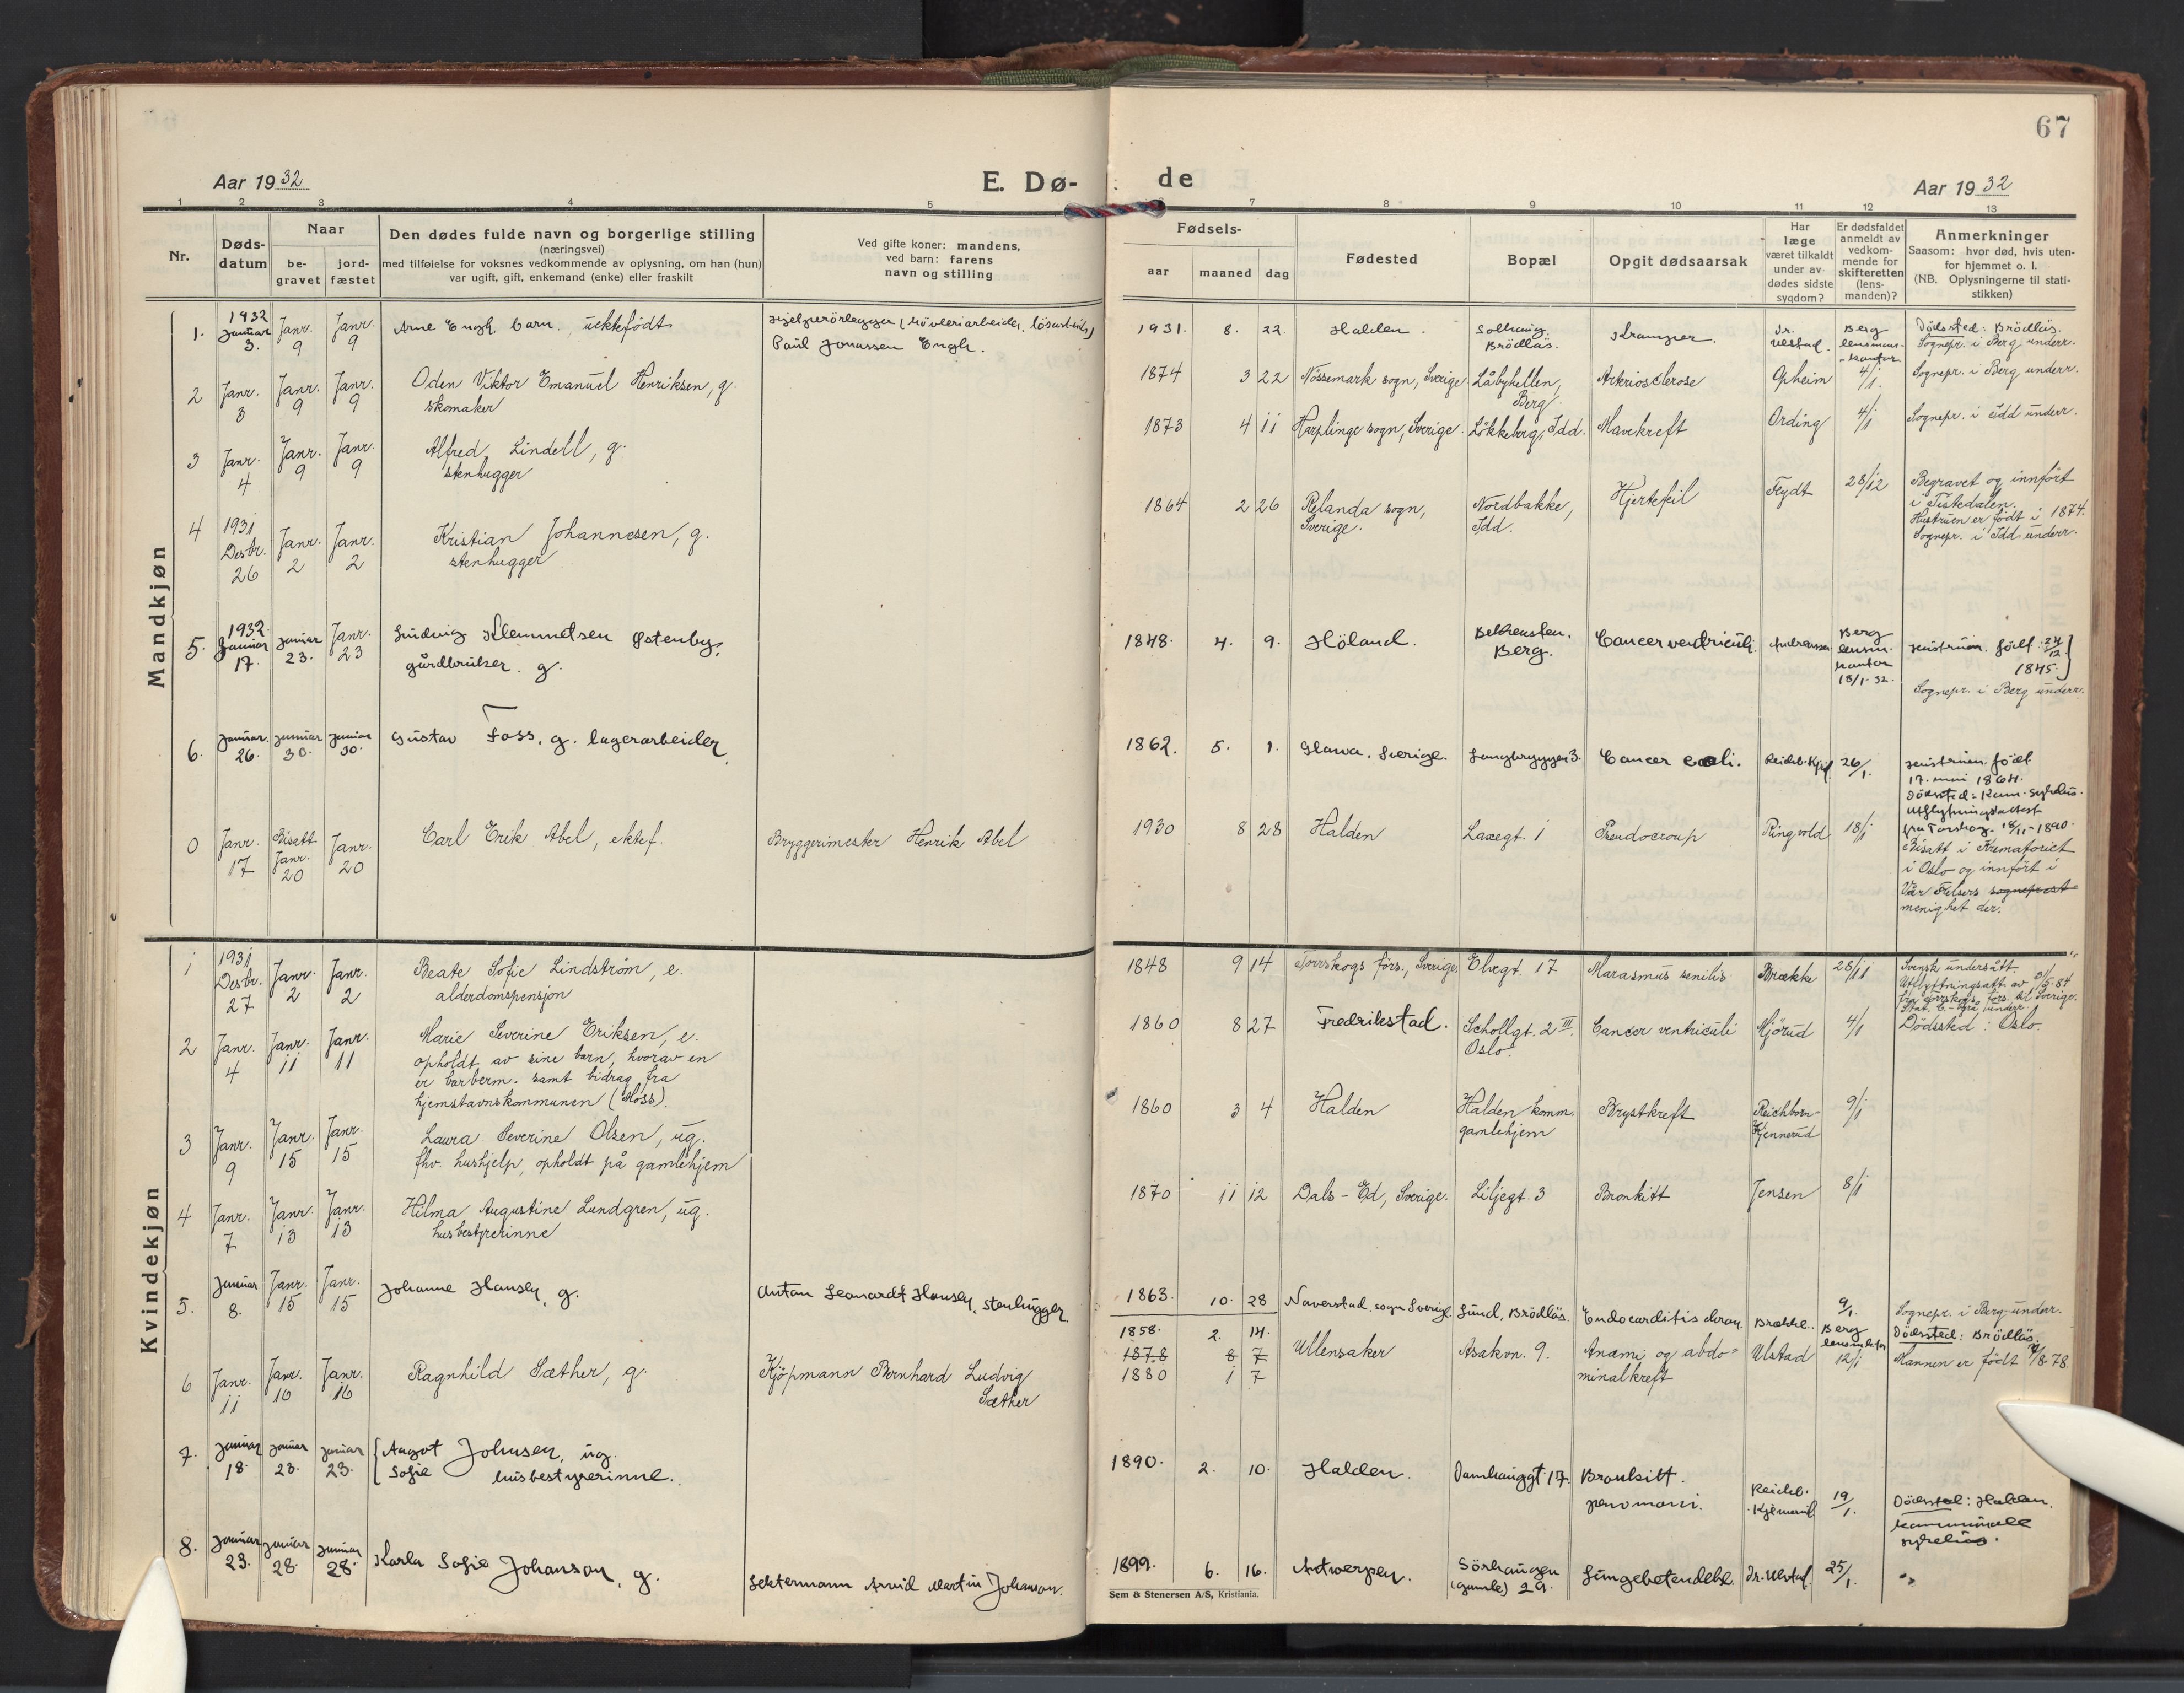 67
Aar 1932
E. Dø-
de
Aar 1932
1 2 3 4 5 6 7 8 9 10 11 12 13
Nr.
Døds-
datum
Naar
be-
gravet
jord-
fæstet
Den dødes fulde navn og borgerlige stilling
(næringsvei)
med tilføielse for voksnes vedkommende av oplysning, om han (hun)
var ugift, gift, enkemand (enke) eller fraskilt
Ved gifte koner: mandens,
ved barn: farens
navn og stilling
Fødsels-
aar
maaned
dag
Fødested
Bopæl
Opgit dødsaarsak
Har
læge
været tilkaldt
under av-
dødes sidste
sygdom?
Er dødsfaldet
anmeldt av
vedkom-
mende for
skifteretten
(lens-
manden)?
Anmerkninger
Saasom: hvor død, hvis uten-
for hjemmet o. l.
(NB. Oplysningerne til stati-
stikken)
Mandkjøn
1. 1932 Januar 3. Janr. 9 Janr. 9 Arne Engh. barn, ektefødt
Hjelperörlegger (Høvleriarbeider, løsarbeider)
Paul Jonassen Engh.
1931. 8. 22. Halden. Solhaug. Brödløs. Kramper. Dr. Ulstad. Berg lensmans-kontor
Dödssted: Brödløs.
Sognepr. i Berg underr.
2 Janr. 3 Janr. 9 Janr. 9 Oden Viktor Emanuel Henriksen, g.
skomaker
1874 3 22 Nössemark sogn, Sverige. Låbyhellen, Berg. Arteriosclerose Opheim 4/1. Sognepr. i Berg underr.
3 Janr. 4 Janr. 9 Janr. 9 Alfred Lindell, g.
stenhugger
1873 4 11 Harplinge sogn, Sverige. Løkkeberg, Idd. Mavekreft Ording 4/1 Sognepr. i Idd underr.
4 1931 Desbr. 26 Janr. 2 Janr. 2 Kristian Johannesen, g.
stenhugger
1864 2 26 Rölanda sogn, Sverige. Nordbakke, Idd. Hjertefeil Feydt 28/12
Begravet og innført
i Tistedalen.
Hustruen er født i 1874.
Sognepr. i Idd underr.
5. 1932 Januar 17. Januar 23. Janr. 23 Ludvig Klemmetsen Østenby,
gårdbruker. g.
1848. 4. 9. Höland. Berg. Cancer ventriculi. Andreassen Berg lensm. kontor 18/1-32.
Hustruen født 24/12 1845.
Sognepr. i Berg underr.
6. Januar 26. Januar 30. Januar 30. Gustav Foss, g. lagerarbeider.
1862. 5. 1. Glava, Sverige. Langbryggen 3. Cancer coli. Reichb. Kj. 26/1.
Hustruen født
17. mai 1864.
Dödssted: Kom. sykehus.
Utflytningsattest
fra Torskog 18/11-1890.
0 Janr. 17 Bisatt Janr. 20 Janr. 20 Carl Erik Abel, ektef.
Bryggerimester Henrik Abel
1930 8 28 Halden Laxegt. 1 Pseudocroup Ringvold 18/1
Bisatt i Krematoriet
i Oslo og innført i
Vår Frelsers sogneprest
menighet der.
Kvindekjøn
1 1931 Desbr. 27 Janr. 2 Janr. 2 Beate Sofie Lindstrøm, e.
alderdomspensjon
1848 9 14 Torrskogs førs., Sverige. Elvegt. 17 Marasmus senilis Brække 28/11
Svensk undersått.
Utflyttningsatt av 21/5-84
fra Torrskogs førs. til Sverige.
2 Janr. 4 Janr. 11 Janr. 11 Marie Severine Eriksen, e.
opholdt av sine barn, hvorav en
er barberm. samt bidrag fra
hjemstavnskommunen (Moss).
1860 8 27 Fredrikstad. Schollgt. 2 III. Oslo. Cancer ventriculi Mjörud 4/1 Dödssted: Oslo.
3 Janr. 9 Janr. 15 Janr. 15 Laura Severine Olsen, ug.
fhv. hushjelp, opholdt på gamlehjem
1860 3 4 Halden Halden komm. gamlehjem Brystkreft Reichborn-Kjennerud 9/1
4 Janr. 7 Janr. 13 Janr. 13 Hilma Augustine Lundgren, ug.
husbestyrerinne
1870 11 12 Dals-Ed, Sverige. Liljegt. 3 Bronkitt Jensen 8/1
5. Januar 8. Janr. 15 Janr. 15 Johanne Hansen, g.
Anton Leonardt Hansen, stenhugger
1863. 10. 28 Naverstad, sogn Sverige. Lund, Brödløs. Endocarditis chron. Brække. 9/1. Berg lensm.ktr
Sognepr. i Berg underr.
Dödssted: Brödløs.
6 Janr. 11 Janr. 16 Janr. 16 Ragnhild Sæther, g.
Kjøpmann Bernhard Ludvig
Sæther
1858. 2. 14.
1878 8 7
1880 1 7
Ullensaker Asakvn. 9. Anemi og abdo-
minalkreft Ulstad 12/1 Mannen er født 7/8-78.
7. Januar 18. Januar 23. Januar 23. Aagot Sofie Johnsen, ug.
husbestyrerinne.
1890. 2. 10. Halden. Damhauggt. 17. Bronkitt.
Reichb. Kjennerud 19/1.
Dödssted: Halden
kommunale
sykehus.
8. Januar 23. Januar 28. Januar 28. Karla Sofie Johanson, g.
Lektermann Arvid Martin Johanson.
1899. 6. 16. Antwerpen. Sörhaugen (gamle) 29. Lungebetendelse. Dr. Ulstad. 25/1. "
Sem & Stenersen A/S, Kristiania.